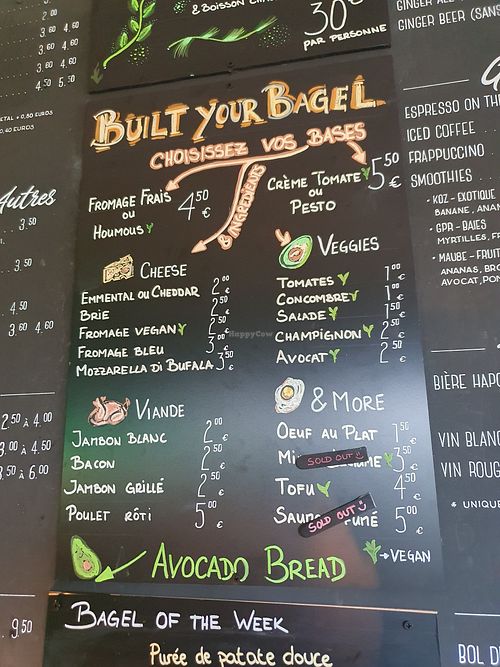 & BOISSON
30€
PAR PERSONNE
GINGER BEER (SANS
BUILT YOUR BAGEL
CHOISISSEZ VOS BASES
& INGREDIENTS
FROMAGE FRAIS
OU
HOUMOUS
4.50 €
CRÈME TOMATE
OU
PESTO
5.50 €
CHEESE
EMMENTAL OU CHEDDAR 2.00
BRIE 2.50
FROMAGE VEGAN 2.50
FROMAGE BLEU 3.00
MOZZARELLA DI BUFALA 3.50 €
VEGGIES
TOMATES 1.00
CONCOMBRE 1.00
SALADE 1.50
CHAMPIGNON 2.50
AVOCAT 2.50 €
VIANDE
JAMBON BLANC 2.00 €
BACON 2.50 €
JAMBON GRILLÉ 2.50 €
POULET RÔTI 5.00 €
& MORE
OEUF AU PLAT 1.50 €
SOLD OUT 3.50 €
TOFU 4.50 €
SOLD OUT 5.00 €
VEGAN
AVOCADO BREAD
BAGEL OF THE WEEK
Purée de patate douce
Autres
3.60 4.60
3.60 4.60
4.50 5.50
0,40 EUROS
3.50
3.50
4.50
3.60 4.60
2.50 à 4.00
3.00 à 4.50
3.50 à 6.00
9.50
ESPRESSO ON TH
ICED COFFEE
FRAPPUCCINO
SMOOTHIES
- KOZ - EXOTIQUE
BANANE, ANAN
- GPR - BAIES
MYRTILLES, FR
- MAUBE - FRUIT
ANANAS, BRO
AVOCAT, POM
BIÈRE HAPO
VIN BLANC
VIN ROUG
* UNIQUE
BOL D
HappyCow